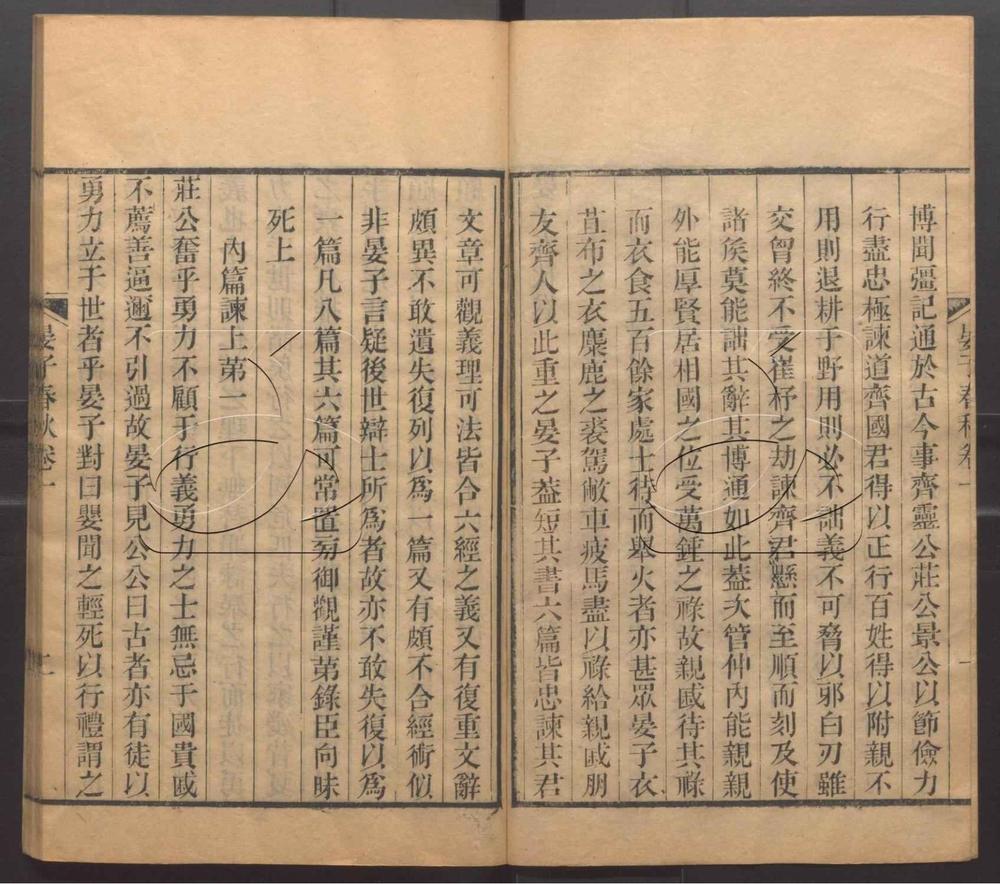 博聞彊記通於古今事齊靈公莊公景公以節儉力
行盡忠極諫道齊國君得以正行百姓得以附親不
用則退耕于野用則必不詘義不可脅以邪白刃雖
交胷終不受崔杼之劫諫齊君懸而至順而刻及使
諸矦莫能詘其辭其博通如此葢次管仲內能親親
外能厚賢居相國之位受萬鍾之祿故親戚待其祿
而衣食五百餘家處士待而舉火者亦甚眾晏子衣
苴布之衣麋鹿之裘駕敝車疲馬盡以祿給親戚朋
友齊人以此重之晏子葢短其書六篇皆忠諫其君
晏子春秋卷一
一
文章可觀義理可法皆合六經之義又有復重文辭
頗異不敢遺失復列以爲一篇又有頗不合經術似
非晏子言疑後世辯士所爲者故亦不敢失復以爲
一篇凡八篇其六篇可常置旁御觀謹第錄臣向昧
死上
內篇諫上第一
莊公奮乎勇力不顧于行義勇力之士無忌于國貴戚
不薦善逼邇不引過故晏子見公公曰古者亦有徒以
勇力立于世者乎晏子對曰嬰聞之輕死以行禮謂之
晏子春秋卷一
二